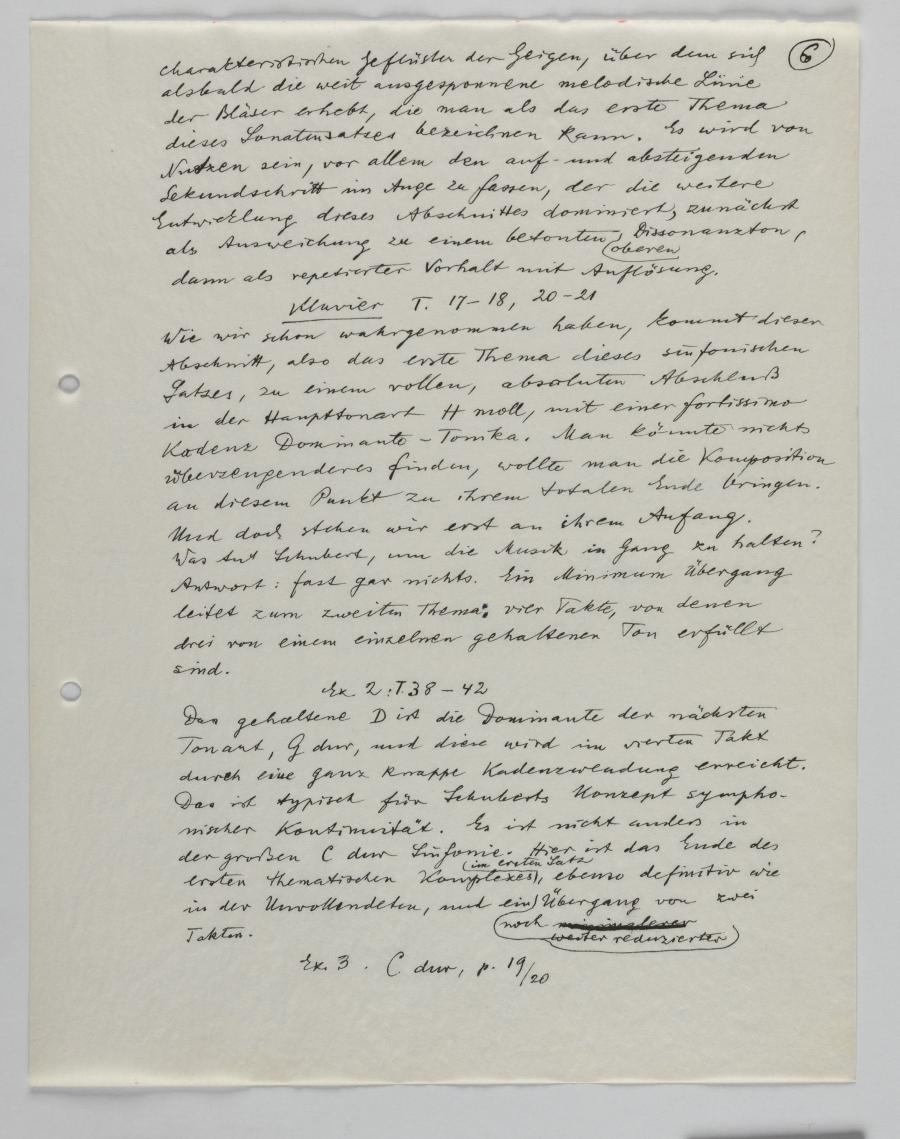 6
charakteristischen Geflüster der Geigen, über dem sich
alsbald die weit ausgesponnene melodische Linie
der Bläser erhebt, die man als das erste Thema
dieses Sonatensatzes bezeichnen kann. Es wird von
Nutzen sein, vor allem den auf- und absteigenden
Sekundschritt im Auge zu fassen, der die weitere
Entwicklung dieses Abschnittes dominiert, zunächst
als Ausweichung zu einem betonten Dissonanzton,
(oberen
dann als repetierter Vorhalt mit Auflösung.
Klavier T. 17-18, 20-21
Wie wir schon wahrgenommen haben, kommt dieser
Abschnitt, also das erste Thema dieses sinfonischen
Satzes, zu einem vollen, absoluten Abschluß
in der Haupttonart H moll, mit einer fortissimo
Kadenz Dominante-Tonika. Man könnte nichts
überzeugenderes finden, wollte man die Komposition
an diesem Punkt zu ihrem totalen Ende bringen.
Und doch stehen wir erst an ihrem Anfang.
Was tut Schubert, um die Musik in Gang zu halten?
Antwort: fast gar nichts. Ein Minimum Übergang
leitet zum zweiten Thema: vier Takte, von denen
drei von einem einzelnen gehaltenen Ton erfüllt
sind.
Ex. 2: T. 38-42
Das gehaltene D ist die Dominante der nächsten
Tonart, G dur, und diese wird im vierten Takt
durch eine ganz knappe Kadenzwendung erreicht.
Das ist typisch für Schuberts Konzept sympho-
nischer Kontinuität. Es ist nicht anders in
der großen C dur Sinfonie. Hier ist das Ende des
(im ersten Satz
ersten thematischen Komplexes), ebenso definitiv wie
in der Unvollendeten, und ein) Übergang von zwei
(noch
weiter reduzierter)
Takten.
Ex. 3. C dur, p. 19/20